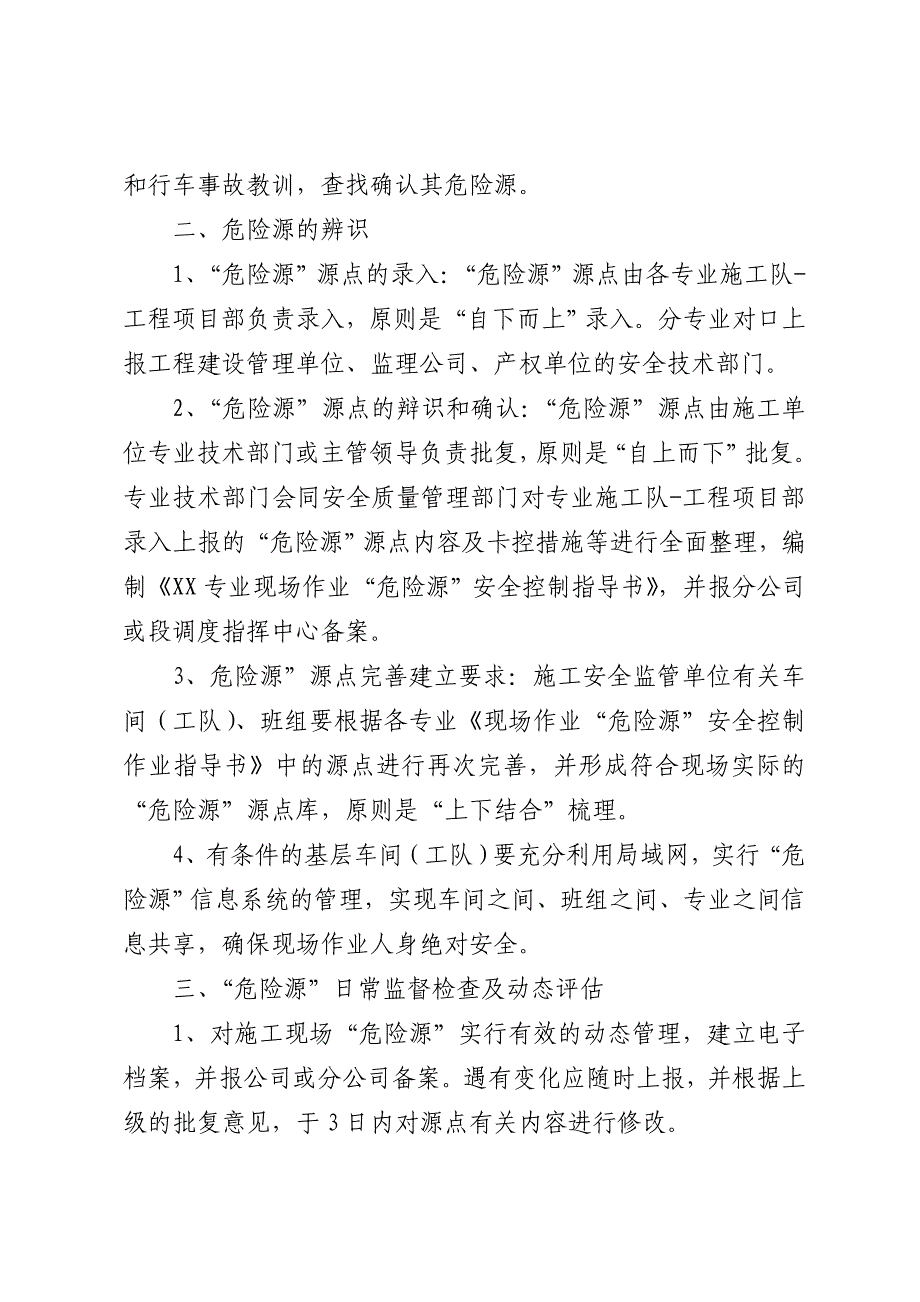 和行车事故教训，查找确认其危险源。
二、危险源的辨识
1、“危险源”源点的录入：“危险源”源点由各专业施工队-
工程项目部负责录入，原则是“自下而上”录入。分专业对口上
报工程建设管理单位、监理公司、产权单位的安全技术部门。
2、“危险源”源点的辩识和确认：“危险源”源点由施工单
位专业技术部门或主管领导负责批复，原则是“自上而下”批复。
专业技术部门会同安全质量管理部门对专业施工队-工程项目部
录入上报的“危险源”源点内容及卡控措施等进行全面整理，编
制《XX 专业现场作业“危险源”安全控制指导书》，并报分公司
或段调度指挥中心备案。
3、危险源”源点完善建立要求：施工安全监管单位有关车
间（工队）、班组要根据各专业《现场作业“危险源”安全控制
作业指导书》中的源点进行再次完善，并形成符合现场实际的
“危险源”源点库，原则是“上下结合”梳理。
4、有条件的基层车间（工队）要充分利用局域网，实行“危
险源”信息系统的管理，实现车间之间、班组之间、专业之间信
息共享，确保现场作业人身绝对安全。
三、“危险源”日常监督检查及动态评估
1、对施工现场“危险源”实行有效的动态管理，建立电子
档案，并报公司或分公司备案。遇有变化应随时上报，并根据上
级的批复意见，于 3 日内对源点有关内容进行修改。